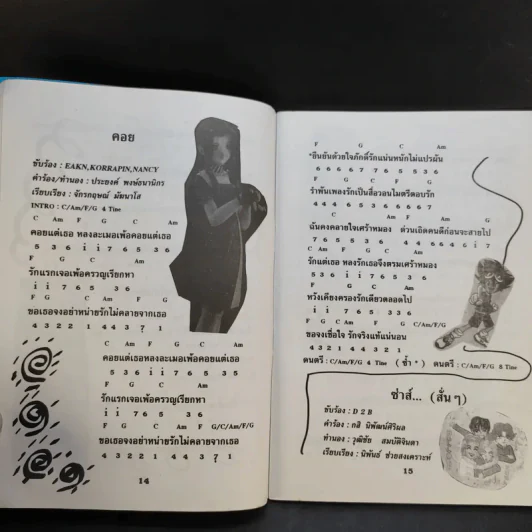 คอย
ขับร้อง : EAKN,KORRAPIN,NANCY
คำร้อง/ทำนอง : ประยงค์ พงษ์ธนานิกร
เรียบเรียง : จักรกฤษณ์ มัฆนาโส
INTRO : C/Am/F/G 4 Time
C Am F G C Am
คอยแต่เธอ หลงละเมอเพ้อคอยแต่เธอ
5 3 6 i i 7 6 5 3 5
F G C Am
รักแรกเจอเพ้อครวญเรียกหา
i i 7 6 5 3 6
F G C Am F G
ขอเธอจงอย่าหน่ายรักไม่คลายจากเธอ
4 3 2 2 1 4 4 3 7 1
C Am F G C Am
คอยแต่เธอหลงละเมอเพ้อคอยแต่เธอ
5 3 6 i i 7 6 5 3 5
F G C Am
รักแรกเจอเพ้อครวญเรียกหา
i i 7 6 5 3 6
F G C Am F G/C/Am/F/G
ขอเธอจงอย่าหน่ายรักไม่คลายจากเธอ
4 3 2 2 1 4 4 3 7 1
14
F G C Am
*ยืนยันด้วยใจภักดิ์รักแน่นหนักไม่แปรผัน
6 6 6 6 7 7 6 5 5 3 6
F G C F G
รำพันเพลงรักเป็นสื่อวอนไมตรีตอบรัก
4 4 4 6 5 3 6 6 6 6 7
C Am F Am G
ฉันคงคลายใจเศร้าหมอง ด่วนเถิดคนดีก่อนจะสายไป
7 6 5 5 3 6 4 4 6 6 4 6 i 7
C Am F G C Am
รักแต่เธอ หลงรักเธอจึงตรมเศร้าหมอง
5 3 6 i i 7 6 5 3 6
F G C Am
หวังเคียงครองรักเดียวตลอดไป
i i 7 6 5 5 3 6
F G C Am F G C/Am/F/G
ขอจงเชื่อใจ รักจริงแท้แน่นอน
4 3 2 1 4 4 3 2 1
ดนตรี : C/Am/F/G 4 Time ( ซ้ำ * ) ดนตรี : C/Am/F/G 8 Time
ซ่าส์... (สั่น ๆ)
ขับร้อง : D 2 B
คำร้อง : กสิ นิพัฒน์ศิริผล
ทำนอง : วุฒิชัย สมบัติจินดา
เรียบเรียง : นิพันธ์ ช่วยสงเคราะห์
15